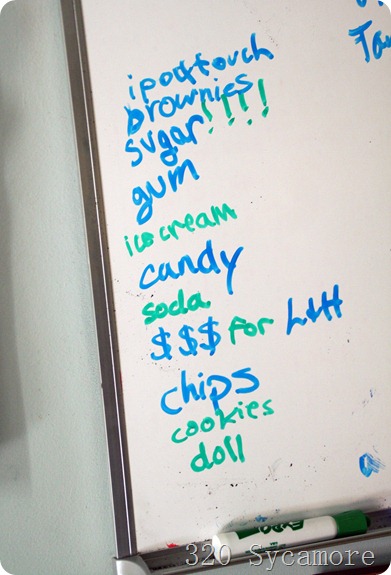 ipod touch
brownies
sugar!!!!
gum
ice cream
candy
soda
$$$ for
chips
cookies
doll
320 Sycamore